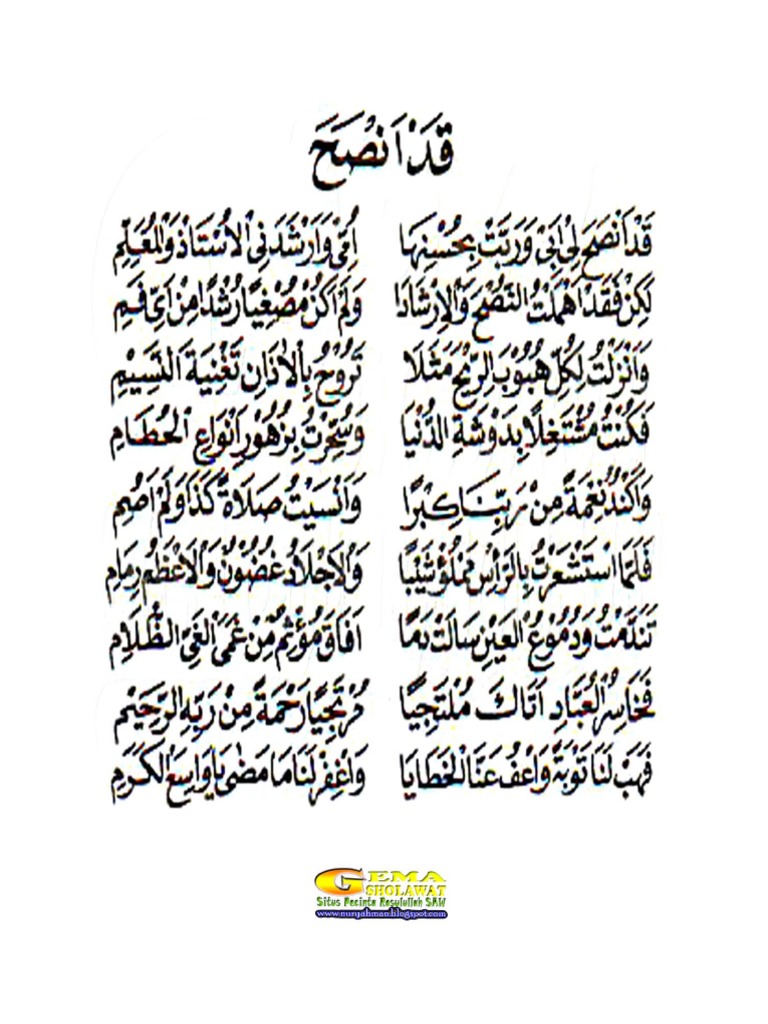 قَدْ اَنْصَحَ
قَدْ اَنْصَحَ لِيْ اَبِيْ وَرَبَّتْ بِحُسْنِهَا اُمِّيْ وَاَرْشَدَنِى الْاُسْتَاذُ وَالْمُعَلِّمِ
لٰكِنْ فَقَدْ اَهْمَلْتُ النُّصْحَ وَالْاِرْشَادَا وَلَمْ اَكُنْ مُصْغِيًا رُشْدًا مِنْ اَيِّ فَمِ
وَاَنْزَلْتُ لِكُلِّ هُبُوْبِ الرِّيْحِ مَثَلًا تَرُوْحُ بِالْاٰذَانِ تَغْنِيَةَ النَّسِيْمِ
فَكُنْتُ مُشْتَغِلًا بِدَوْشَةِ الدُّنْيَا وَسُخِّرْتُ بِزُهُوْرِ اَنْوَاعِ الْحُطَامِ
وَاَكْنُدُ نِعْمَةً مِنْ رَبِّنَا كِبْرًا وَاَنْسَيْتُ صَلَاةً كَذَا وَلَمْ اَصُمِ
فَلَمَّا اسْتَشْعَرْتُ بِالرَّأْسِ مَمْلُوْ شَيْبًا وَالْاَجْلَادُ غُضُوْنٌ وَالْاَعْظُمُ رِمَامِ
تَنَدَّمْتُ وَدُمُوْعُ الْعَيْنِ سَالَتْ دَمًا اَفَاقَ مُؤْثِمٌ مِنْ غُمَى الْغَيِّ الظَّلَامِ
فَخَاسِرُ الْعُبَّادِ اَتَاكَ مُلْتَجِيًا مُرْتَجِيًا رَحْمَةً مِنْ رَبِّهِ الرَّحِيْمِ
فَهَبْ لَنَا تَوْبَةً وَاعْفُ عَنَّا الْخَطَايَا وَاغْفِرْ لَنَا مَا مَضٰى يَا وَاسِعَ الْكَرَمِ
GEMA
SHOLAWAT
Situs Pecinta Rasulullah SAW
www.nurjahman.blogspot.com